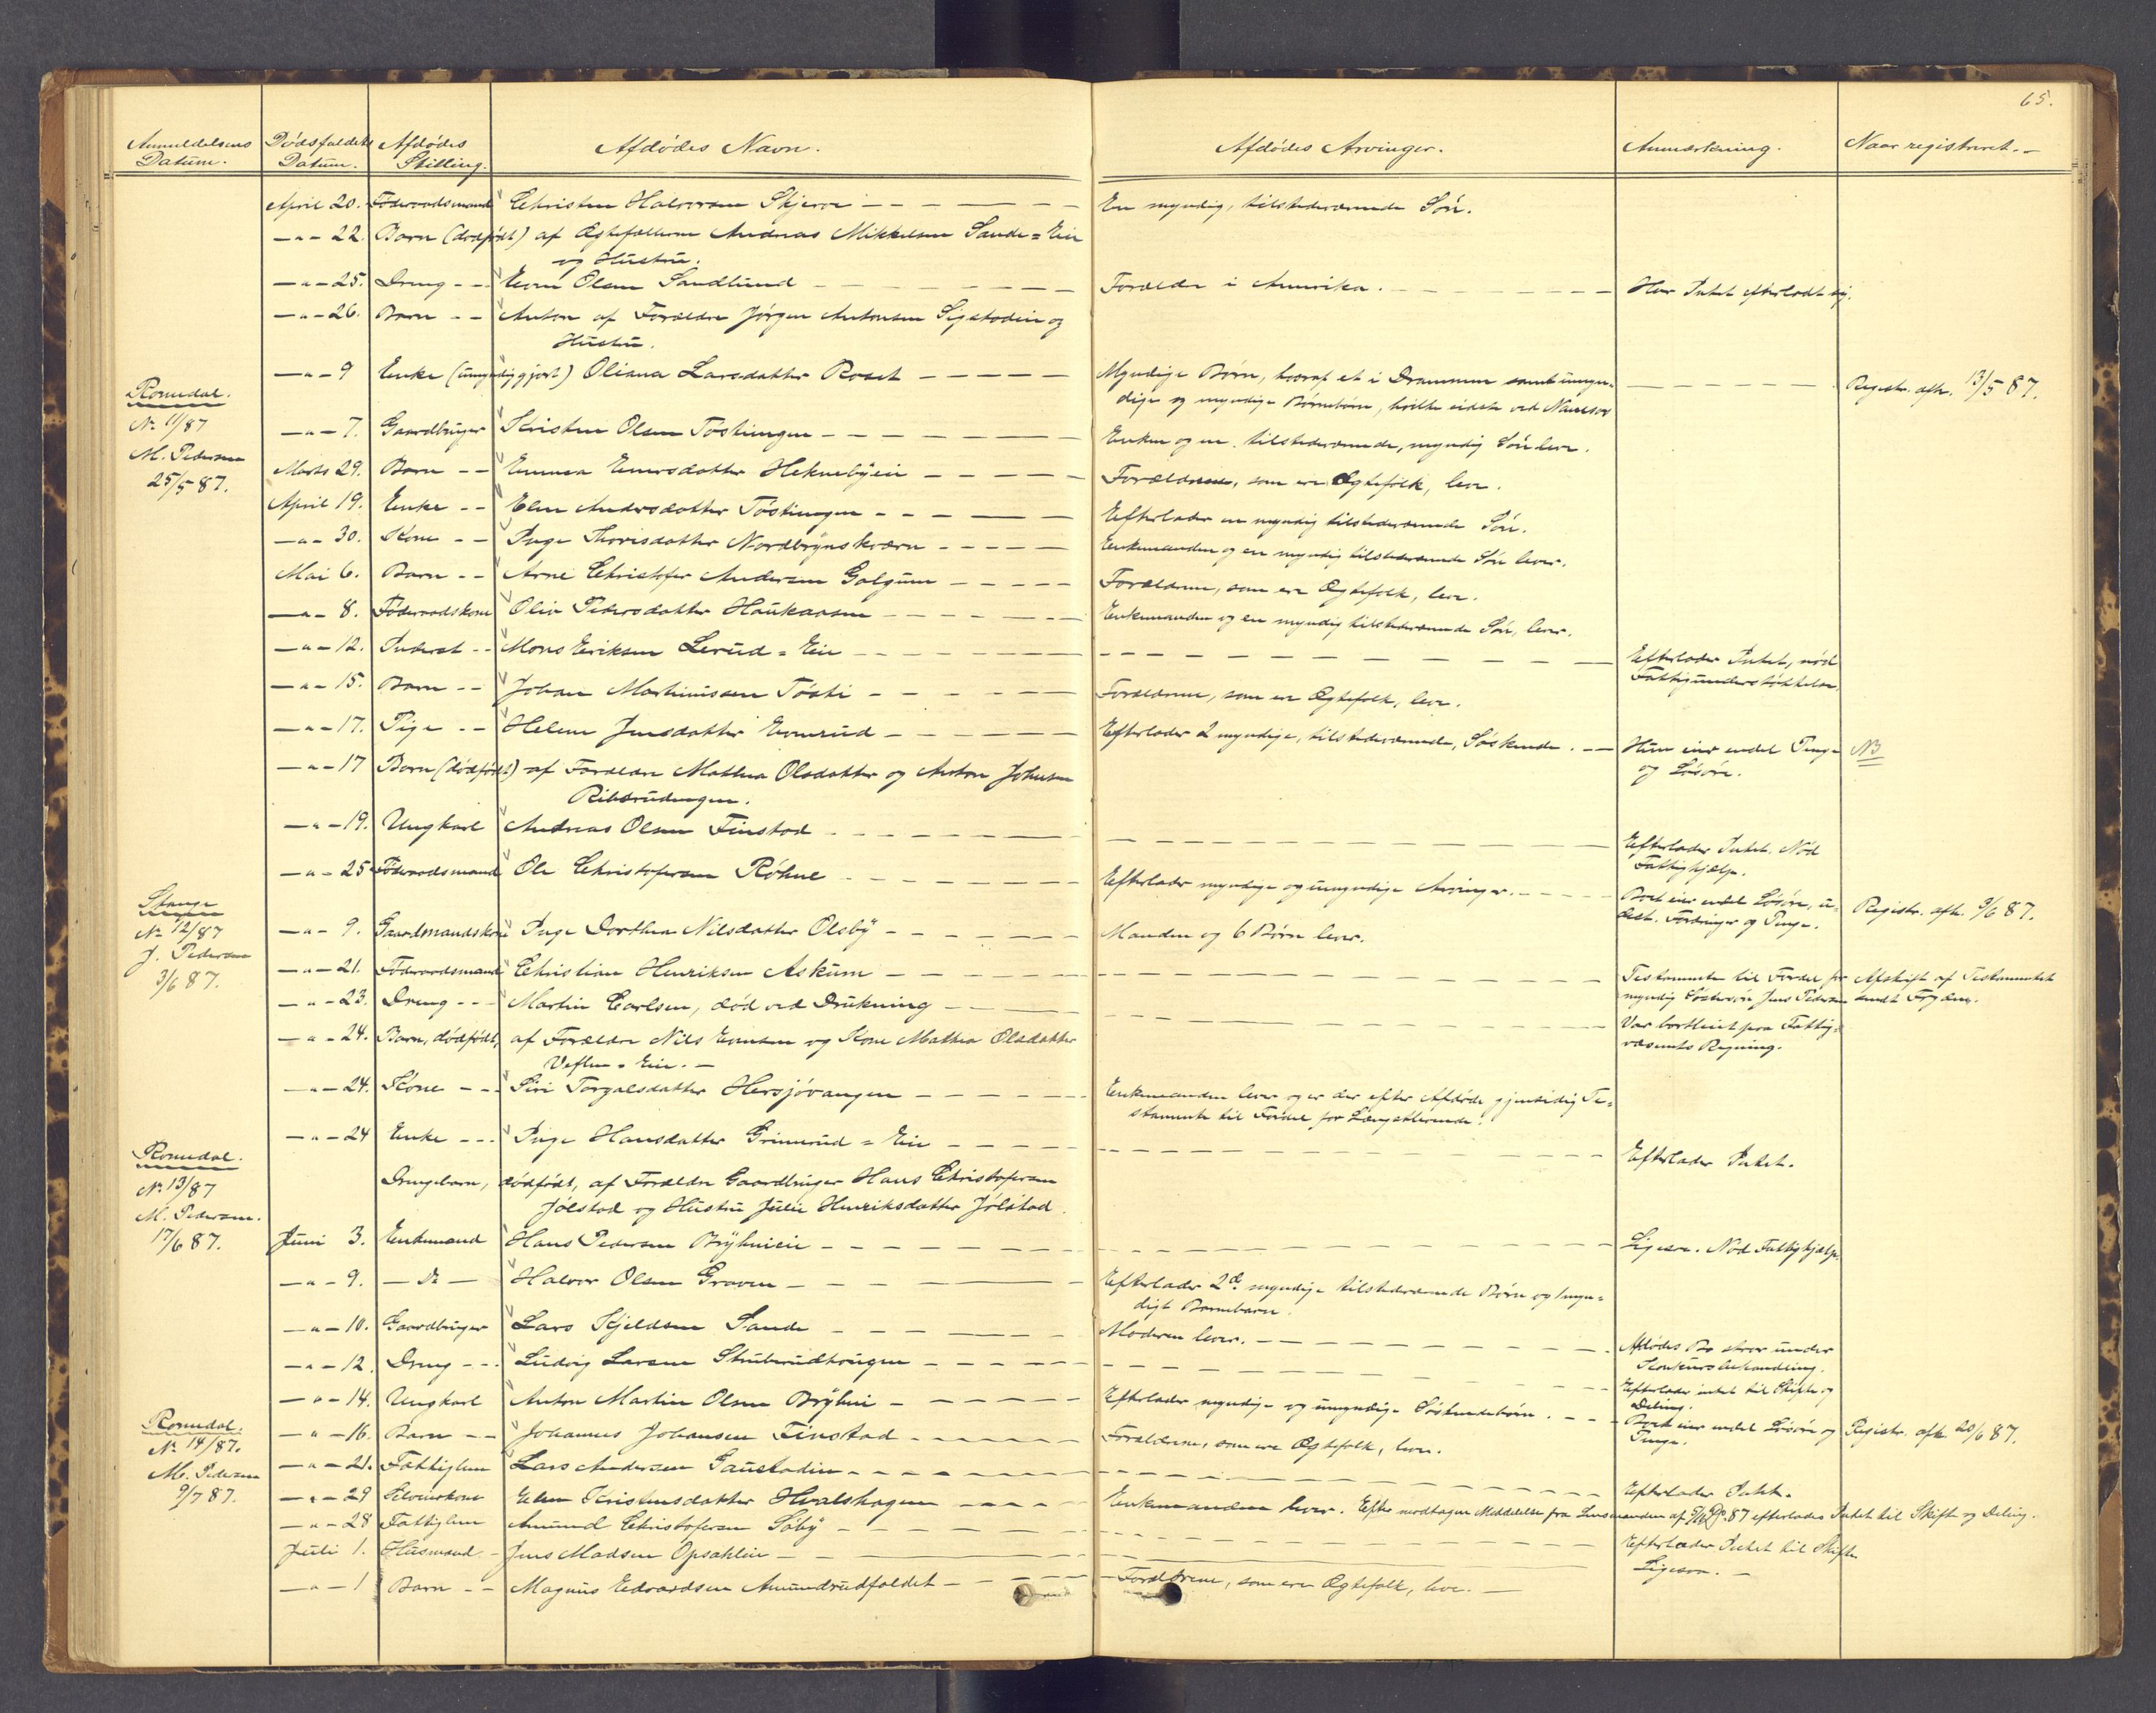 65.
Anmeldelsens Datum. Dødsfaldets Datum. Afdødes Stilling. Afdødes Navn. Afdødes Arvinger. Anmærkning. Naar registreret.
April 20. Føderaadsmand Christen Halvorsen Skjerve En myndig, tilstedeværende Søn.
—„— 22. Barn (dødfødt) af Ægtefællerne Andreas Mikkelsen Sande=Eie
og Hustru.
—„— 25. Dreng Even Olsen Sandlund Forældre i Amerika. Har Intet efterladt sig.
—„— 26. Barn Anton af Forældre Jørgen Antonsen og
Hustru.
—„— 9 Enke (umyndiggjort) Oliana Larsdatter Roset Myndige Børn, hvoraf et i Drammen samt umyn= Registr. afh. 13/5 87.
dige og myndige Børnebørn, hvilke sidste ved
Romedal.
No 11/87
M. Pedersen
25/5 87.
—„— 7. Gaardbruger Kristen Olsen Tøstiengen Enken og en tilstedeværende, myndig Søn lever.
Marts 29. Barn Emma Einersdatter Heknebyeie Forældrene, som ere Ægtefolk, lever.
April 19. Enke Elen Andersdatter Tøstiengen Efterlader en myndig tilstedeværende Søn.
—„— 30. Kone Inge Thorisdatter Nordbrynskværn Enkemanden og en myndig tilstedeværende Søn lever.
Mai 6. Barn Arne Christofer Andersen Galgum Forældrene, som ere Ægtefolk, lever.
—„— 8. Føderaadskone Olia Pedersdatter Haukaasen Enkemanden og en myndig tilstedeværende Søn, lever.
—„— 12. Inderst Mons Eriksen Lerud=Eie Efterlader Intet, nød
Fattigunderstøttelse.
—„— 15. Barn Johan Martiniussen Tøsti Forældrene, som ere Ægtefolk, lever.
—„— 17. Pige Helene Jensdatter Evenrud Efterlader 2 myndige, tilstedeværende, Søskende. Hun eier endel Penge NB
og Løsøre.
—„— 17 Barn (dødfødt) af Forældre Mathea Olsdatter og Anton Johnsen
—„— 19. Ungkarl Andreas Olsen Finstad Efterlader Intet. Nød
Fattighjælp.
—„— 25 Føderaadsmand Ole Christofersen Røhne Efterlader myndige og umyndige Arvinger. Boet eier endel Løsøre, u=
dest. Fordringer og Penge. Registr. afh. 9/6 87.
Stange
No 12/87
J. Pedersen
3/6 87.
—„— 9. Gaardmandskone Inge Dorthea Nilsdatter Olsby Manden og 6 Børn lever.
—„— 21. Føderaadsmand Christian Henriksen Askum Testamente til Fordel for Afskrift af Testamentet
myndig Søstersøn Jens Pedersen sendt
—„— 23. Dreng Martin Carlsen, død ved Drukning Var bortleiet paa Fattig=
væsenets Regning.
—„— 24. Barn, dødfødt, af Forældre Nils Evensen og Kone Mathea Olsdatter
Veflen=Eie.
—„— 24. Kone Siri Torgalsdatter Hersjøvangen Enkemanden lever og er der efter Afdøde gjensidig Te=
stamente til Fordel for Længstlevende.
—„— 24 Enke Inge Hansdatter Grimerud=Eie Efterlader Intet.
Romedal.
No 13/87
M. Pedersen.
17/6 87.
Drengebarn, dødfødt, af Forældre Gaardbruger Hans Christofersen
Jølstad og Hustru Julie Henriksdatter Jølstad.
Juni 3. Enkemand Hans Pedersen Bryhnieie Ligesaa. Nød Fattighjælp.
—„— 9. — Do — Halvor Olsen Graven Efterlader 2de myndige tilstedeværende Børn og 1 myn=
digt Barnebarn.
—„— 10. Gaardbruger Lars Kjeldsen Sande Moderen lever. Afdødes Bo staar under
Konkursbehandling.
—„— 12. Dreng Ludvig Larsen Struberudhaugen Efterlader intet til Skifte og
Deling.
—„— 14. Ungkarl Anton Martin Olsen Bryhni Efterlader myndige og umyndige Søskendebørn. Boet eier endel Løsøre og Registr. afh. 20/6 87.
Penge.
Romedal.
No 14/87.
M. Pedersen
9/7 87.
—„— 16. Barn Johannes Johansen Finstad Forældrene, som ere Ægtefolk, lever.
—„— 21. Fattiglem Lars Andersen Gaustadie Efterlader Intet.
—„— 29 Selveierkone Elen Kristensdatter Hvalshagen Enkemanden lever. Efter modtagen Meddelelse fra Lensmanden af 87 efterlades Intet til Skifte og Deling.
—„— 28 Fattiglem Amund Christofersen Søby Efterlader Intet til Skifte
Juli 1. Husmand Jens Madsen Opsahleie Ligesaa.
—„— 1 Barn Magnus Edvardsen Amundrudfaldet Forældrene, som ere Ægtefolk, lever.